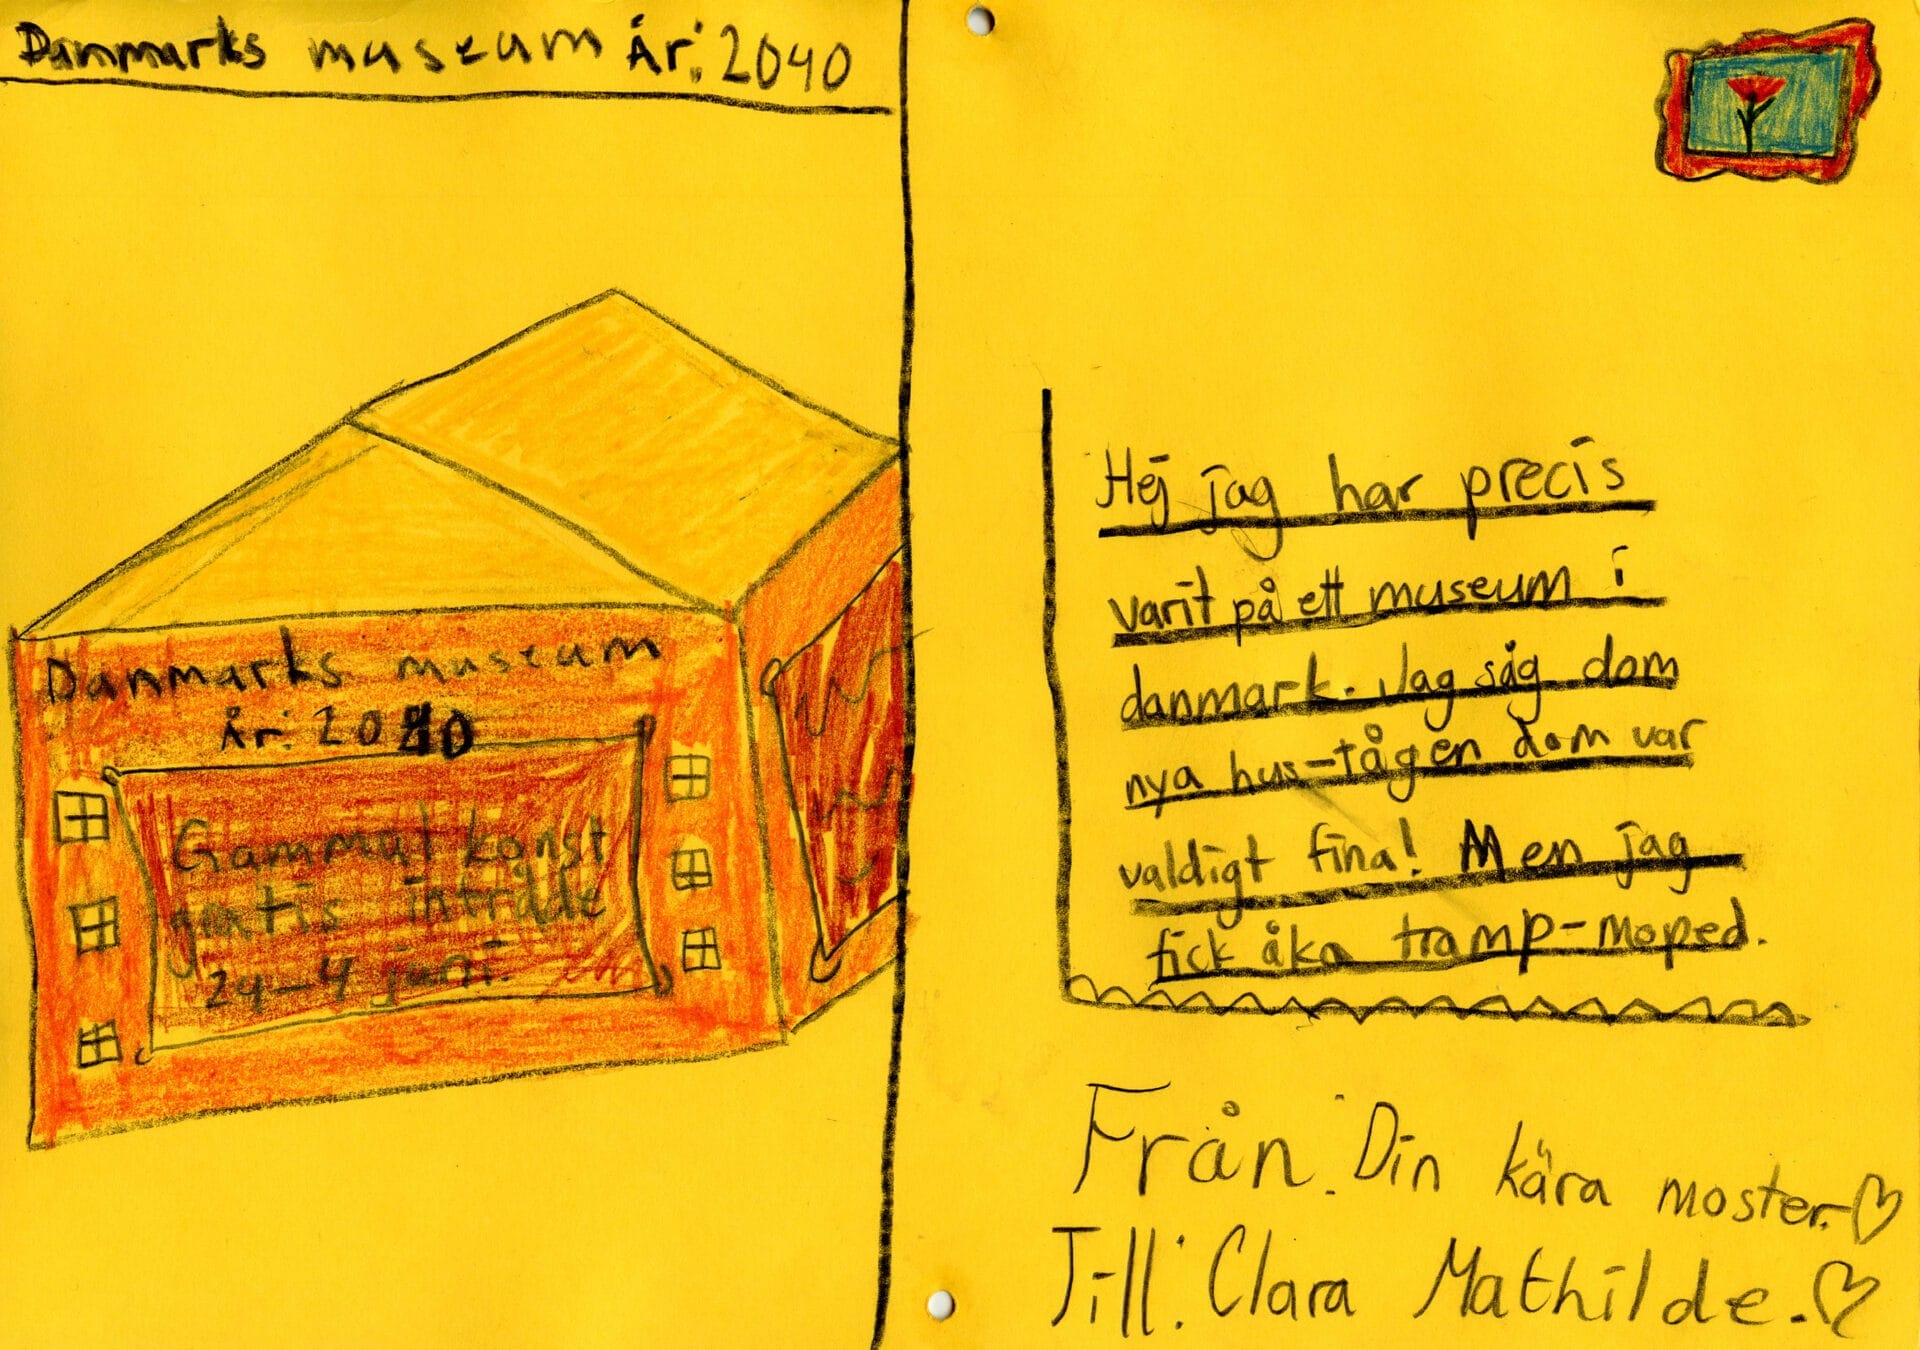 Danmarks museum År: 2040
Danmarks museum
År: 2040
Gammal konst
gratis inträde
24-4 juni.
Hej jag har precis
varit på ett museum i
danmark. Jag såg dom
nya hus-tågen dom var
valdigt fina! Men jag
fick åka tramp-moped.
Från: Din kära moster.
Till: Clara Mathilde.